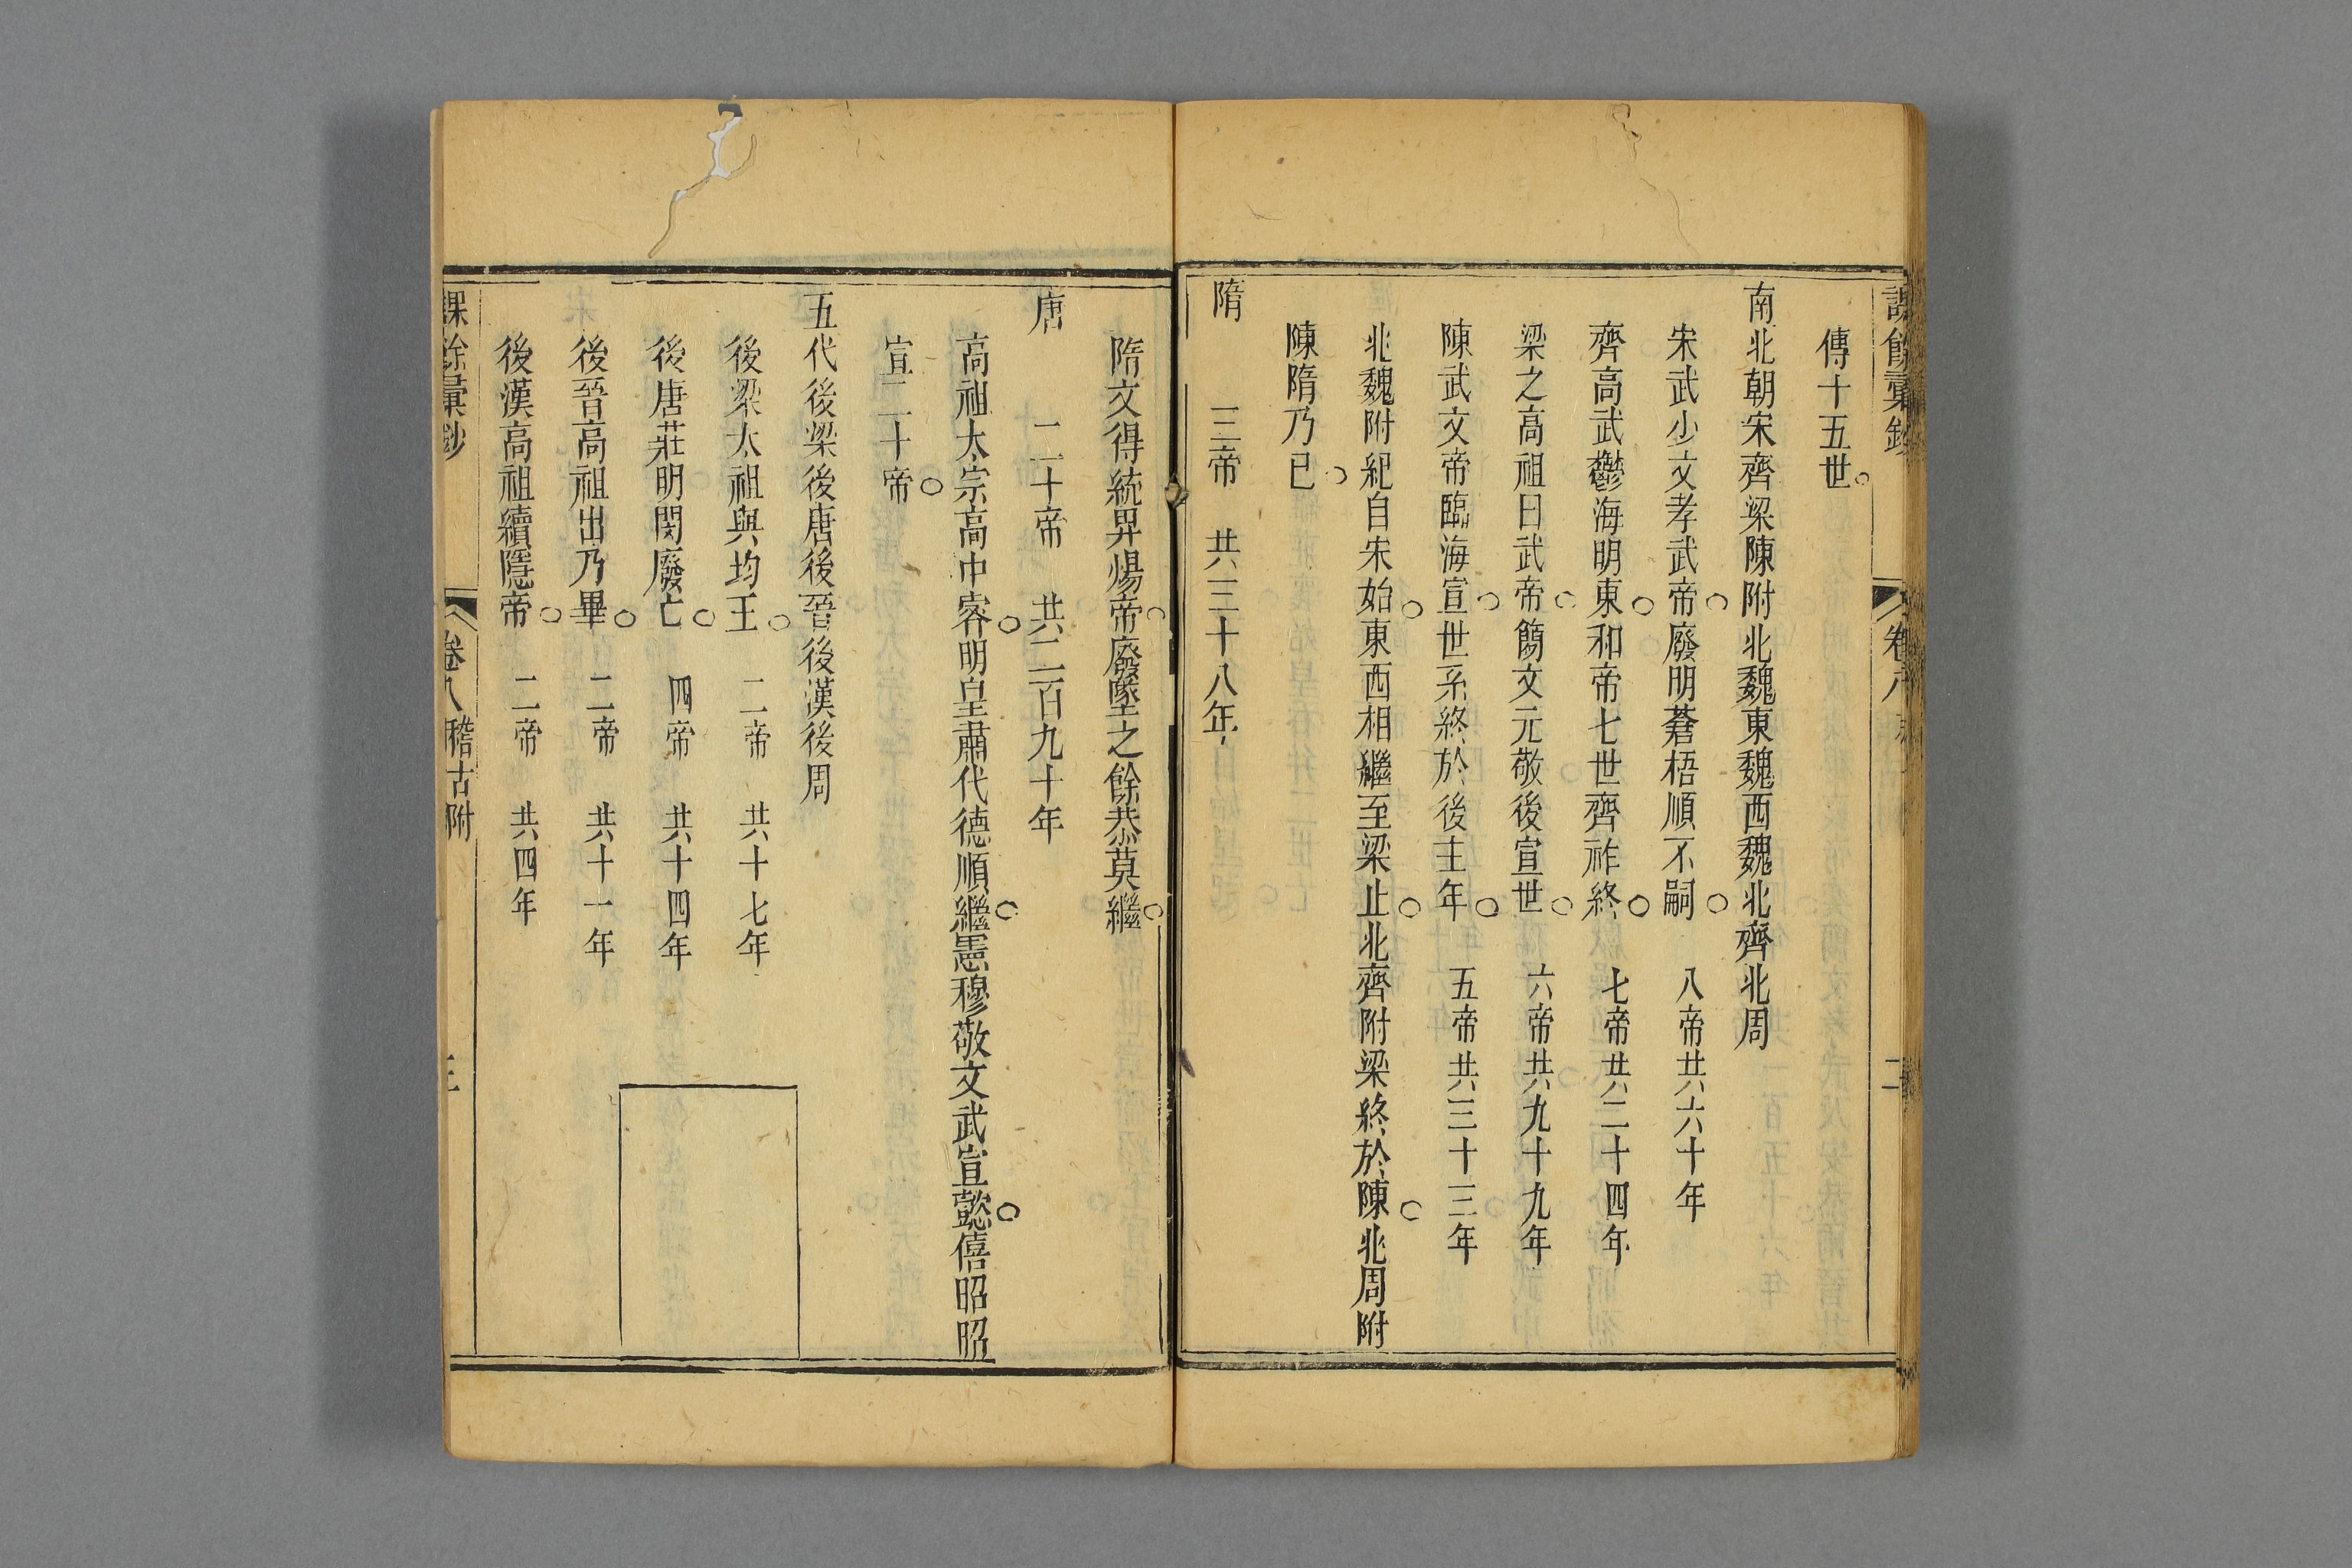 課餘彙鈔 卷八 二
傳十五世○
南北朝宋齊梁陳附北魏東魏西魏北齊北周
宋武少文孝武帝○廢明蒼梧順不嗣○ 八帝共六十年
齊高武鬱海明東○和帝七世齊祚終○ 七帝共二十四年
梁之高祖曰武帝○簡文元敬後宣世○ 六帝共九十九年
陳武文帝臨海宣○世系終於後主年○ 五帝共三十三年
北魏附紀自宋始○東西相繼至梁止○北齊附梁終於陳○北周附
陳隋乃已○
隋 三帝 共三十八年
隋文得統昇煬帝○廢墜之餘恭莫繼○
唐 二十帝 共二百九十年
高祖太宗高中睿○明皇肅代德順繼○憲穆敬文武宣懿○僖昭昭
宣二十帝○
五代後梁後唐後晉後漢後周
後梁太祖與均王○ 二帝 共十七年
後唐莊明閔廢亡○ 四帝 共十四年
後晉高祖出乃畢○ 二帝 共十一年
後漢高祖續隱帝○ 二帝 共四年
課餘彙鈔 卷八 稽古附 三